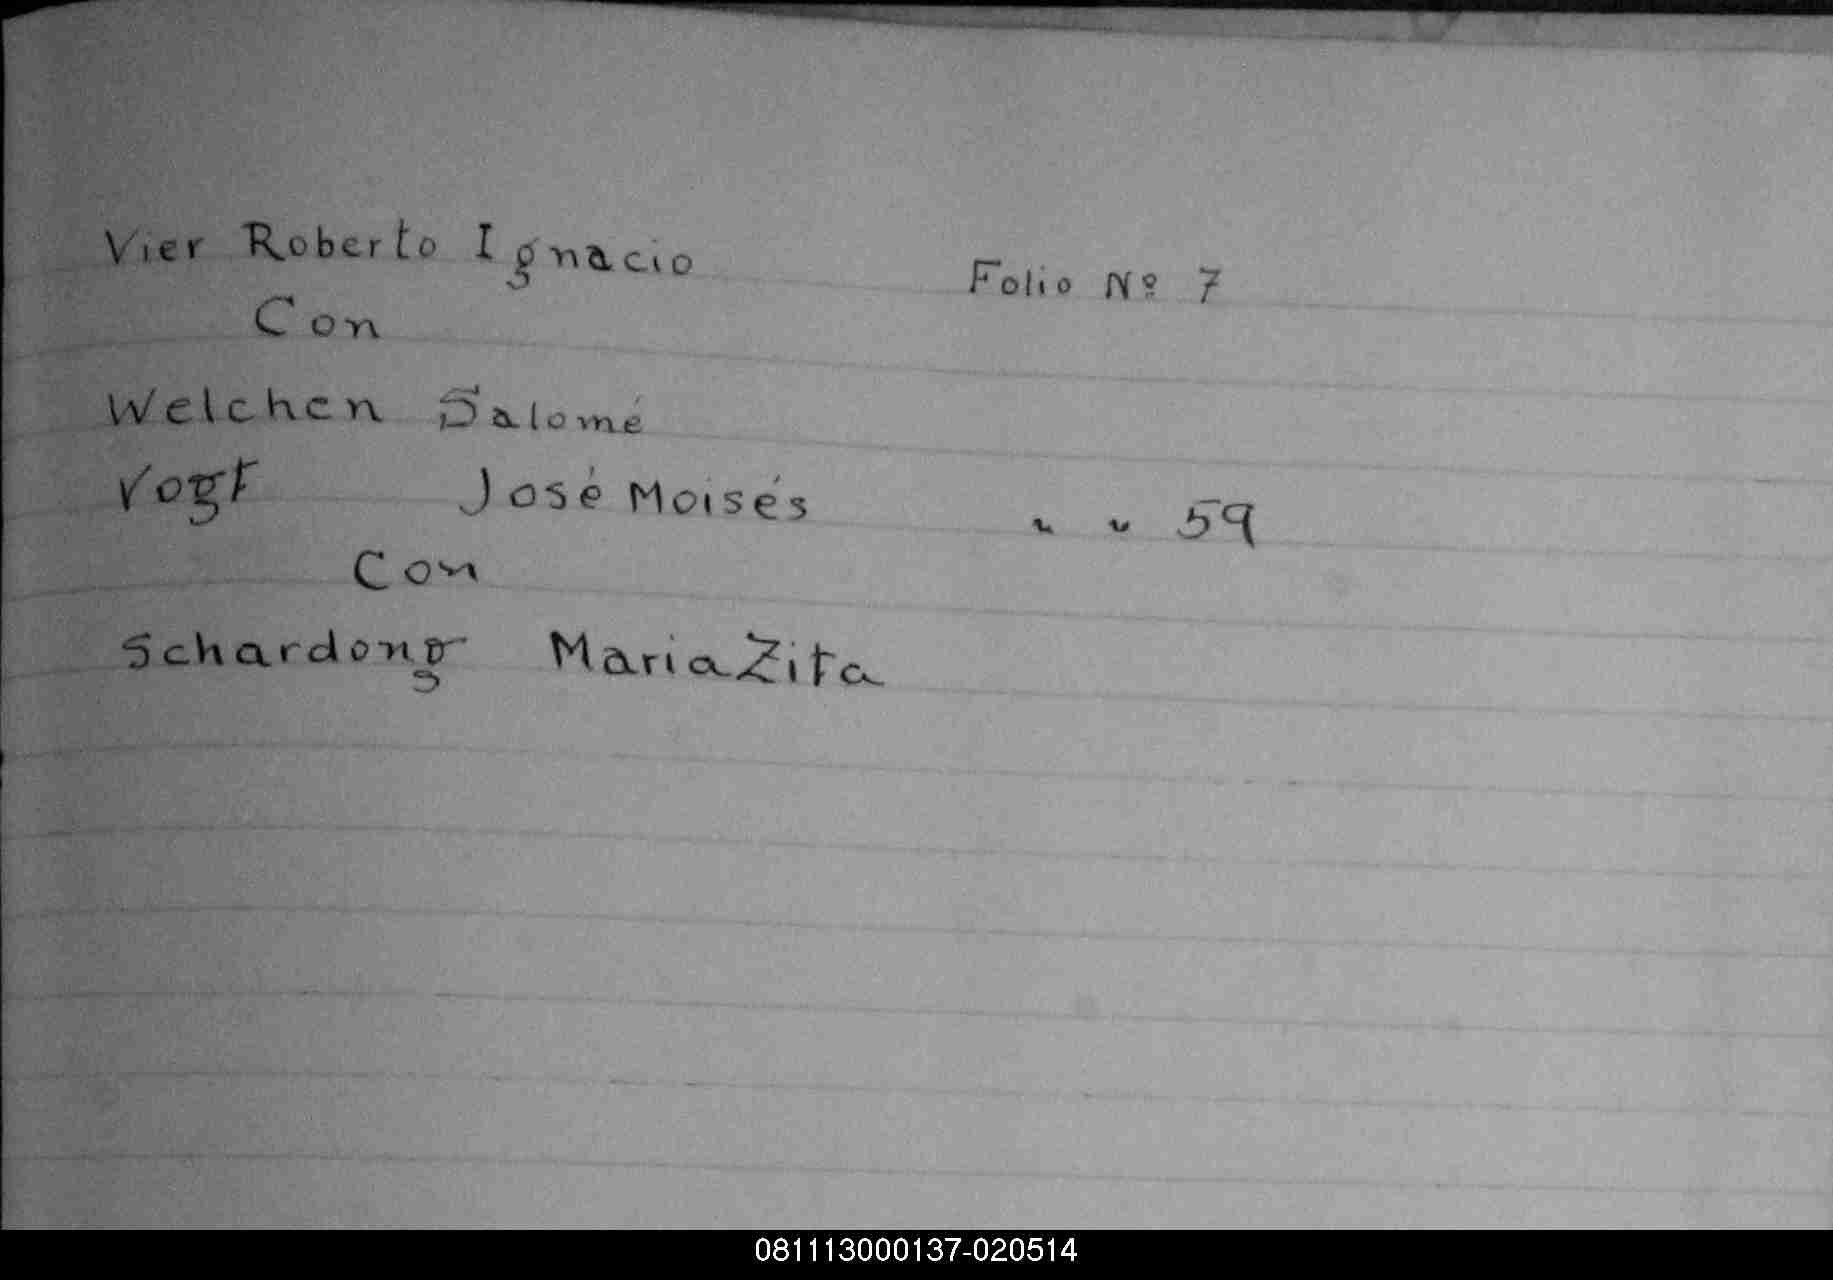 Vier Roberto Ignacio Folio Nº 7
Con
Welchen Salomé
Vogt José Moisés " " 59
Con
Schardong Maria Zita
081113000137-020514